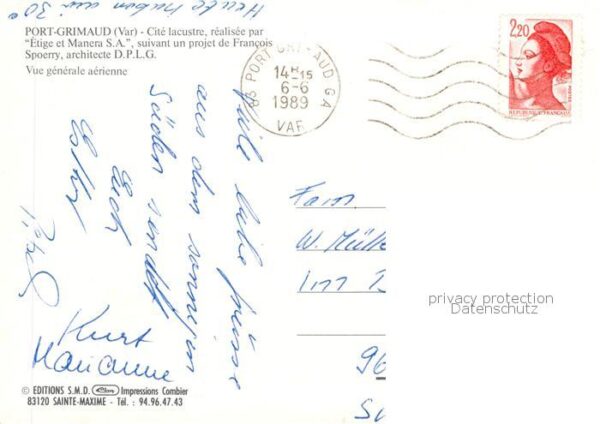 Heute haben wir 30°
PORT-GRIMAUD (Var) - Cité lacustre, réalisée par
"Étige et Manera S.A.", suivant un projet de François
Spoerry, architecte D.P.L.G.
Vue générale aérienne
83 PORT GRIMAUD GA
14H15
6-6
1989
VAR
2,20
REPUBLIQUE FRANÇAISE
POSTES
Viele liebe Grüsse
aus dem sonnigen
Süden sendet
Euch
Kurt
Marianne
Fam.
W. Mülle
Im
96
privacy protection
Datenschutz
© EDITIONS S.M.D. Impressions Combier
83120 SAINTE-MAXIME - Tél. : 94.96.47.43